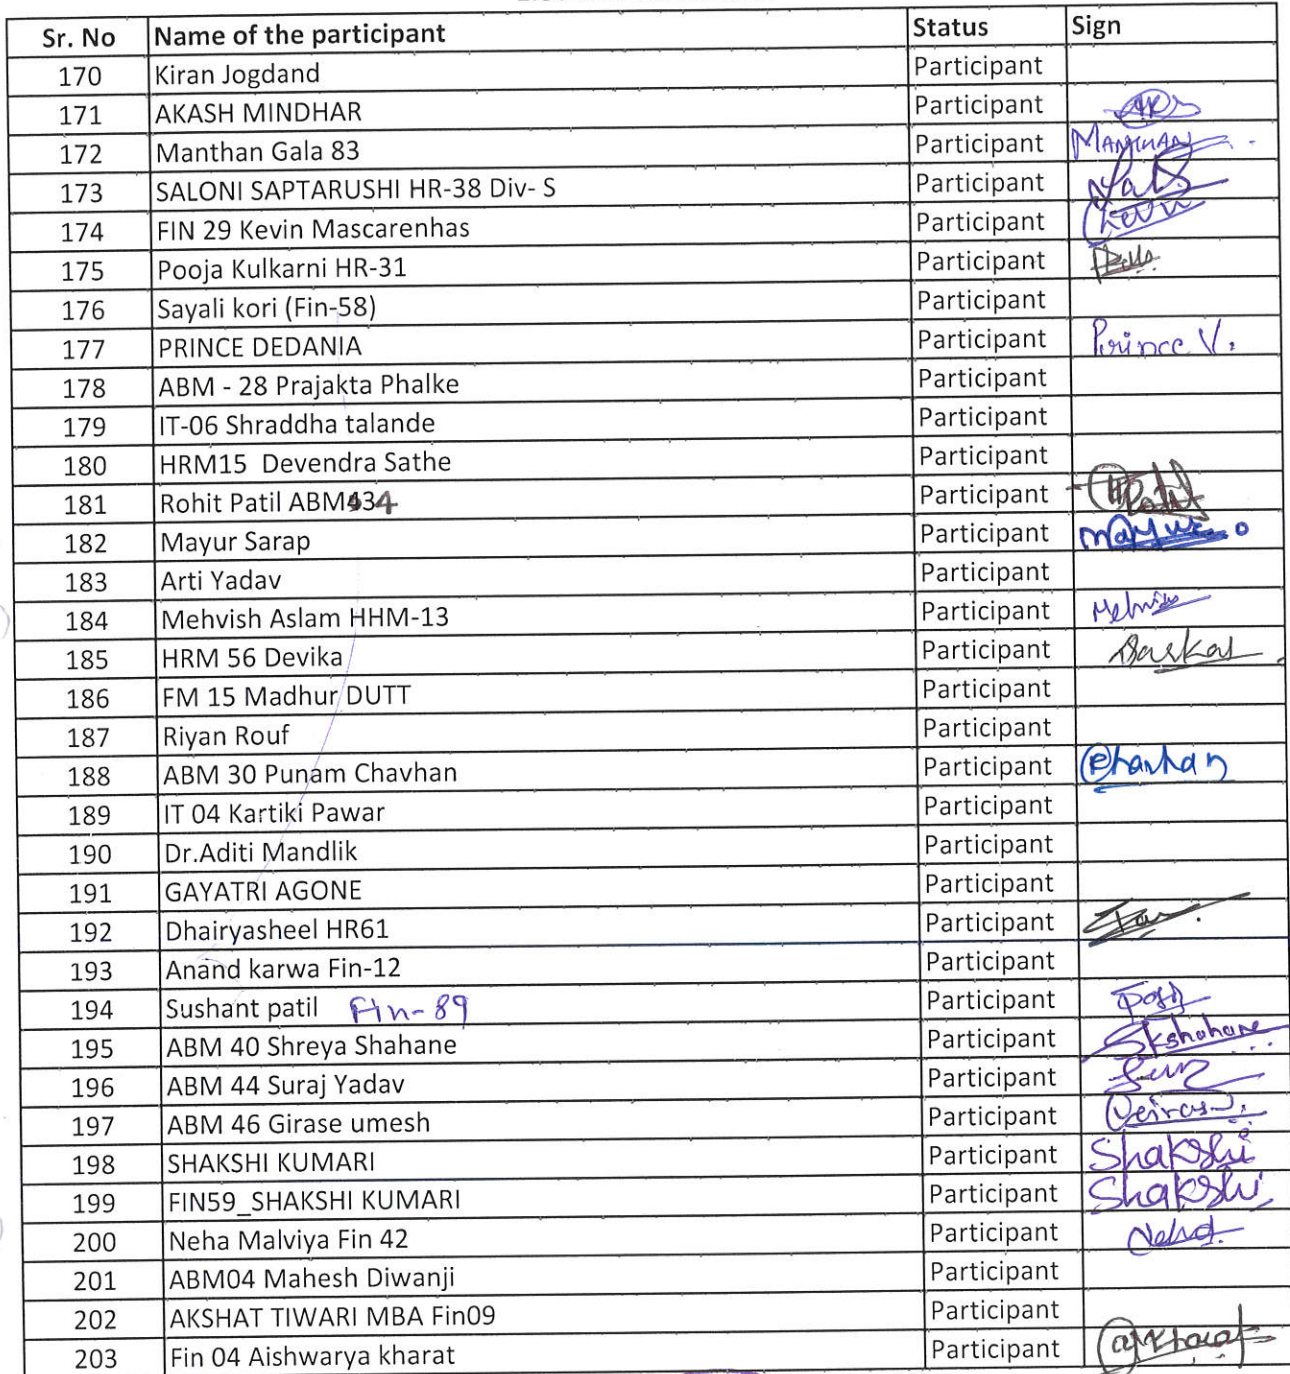 Sr. No Name of the participant Status Sign
170 Kiran Jogdand Participant
171 AKASH MINDHAR Participant
172 Manthan Gala 83 Participant MANTHAN
173 SALONI SAPTARUSHI HR-38 Div- S Participant
174 FIN 29 Kevin Mascarenhas Participant Kevin
175 Pooja Kulkarni HR-31 Participant
176 Sayali kori (Fin-58) Participant
177 PRINCE DEDANIA Participant Prince V.
178 ABM - 28 Prajakta Phalke Participant
179 IT-06 Shraddha talande Participant
180 HRM15 Devendra Sathe Participant
181 Rohit Patil Participant
182 Mayur Sarap Participant
183 Arti Yadav Participant
184 Mehvish Aslam HHM-13 Participant
185 HRM 56 Devika Participant
186 FM 15 Madhur DUTT Participant
187 Riyan Rouf Participant
188 ABM 30 Punam Chavhan Participant
189 IT 04 Kartiki Pawar Participant
190 Dr.Aditi Mandlik Participant
191 GAYATRI AGONE Participant
192 Dhairyasheel HR61 Participant
193 Anand karwa Fin-12 Participant
194 Sushant patil Fin-89 Participant
195 ABM 40 Shreya Shahane Participant Skshahane
196 ABM 44 Suraj Yadav Participant
197 ABM 46 Girase umesh Participant
198 SHAKSHI KUMARI Participant Shakshi
199 FIN59_SHAKSHI KUMARI Participant Shakshi
200 Neha Malviya Fin 42 Participant Neha
201 ABM04 Mahesh Diwanji Participant
202 AKSHAT TIWARI MBA Fin09 Participant
203 Fin 04 Aishwarya kharat Participant